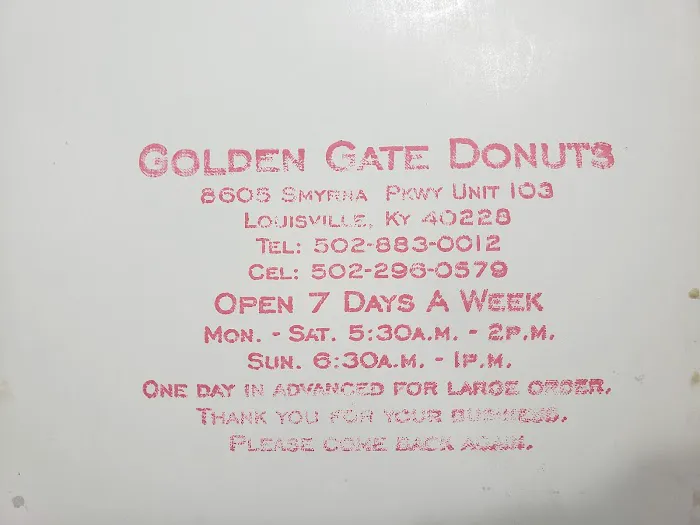 GOLDEN GATE DONUTS
8605 SMYRNA PKWY UNIT 103
LOUISVILLE, KY 40228
TEL: 502-883-0012
CEL: 502-296-0579
OPEN 7 DAYS A WEEK
MON. - SAT. 5:30A.M. - 2P.M.
SUN. 6:30A.M. - 1P.M.
ONE DAY IN ADVANCED FOR LARGE ORDER.
THANK YOU FOR YOUR BUSINESS.
PLEASE COME BACK AGAIN.